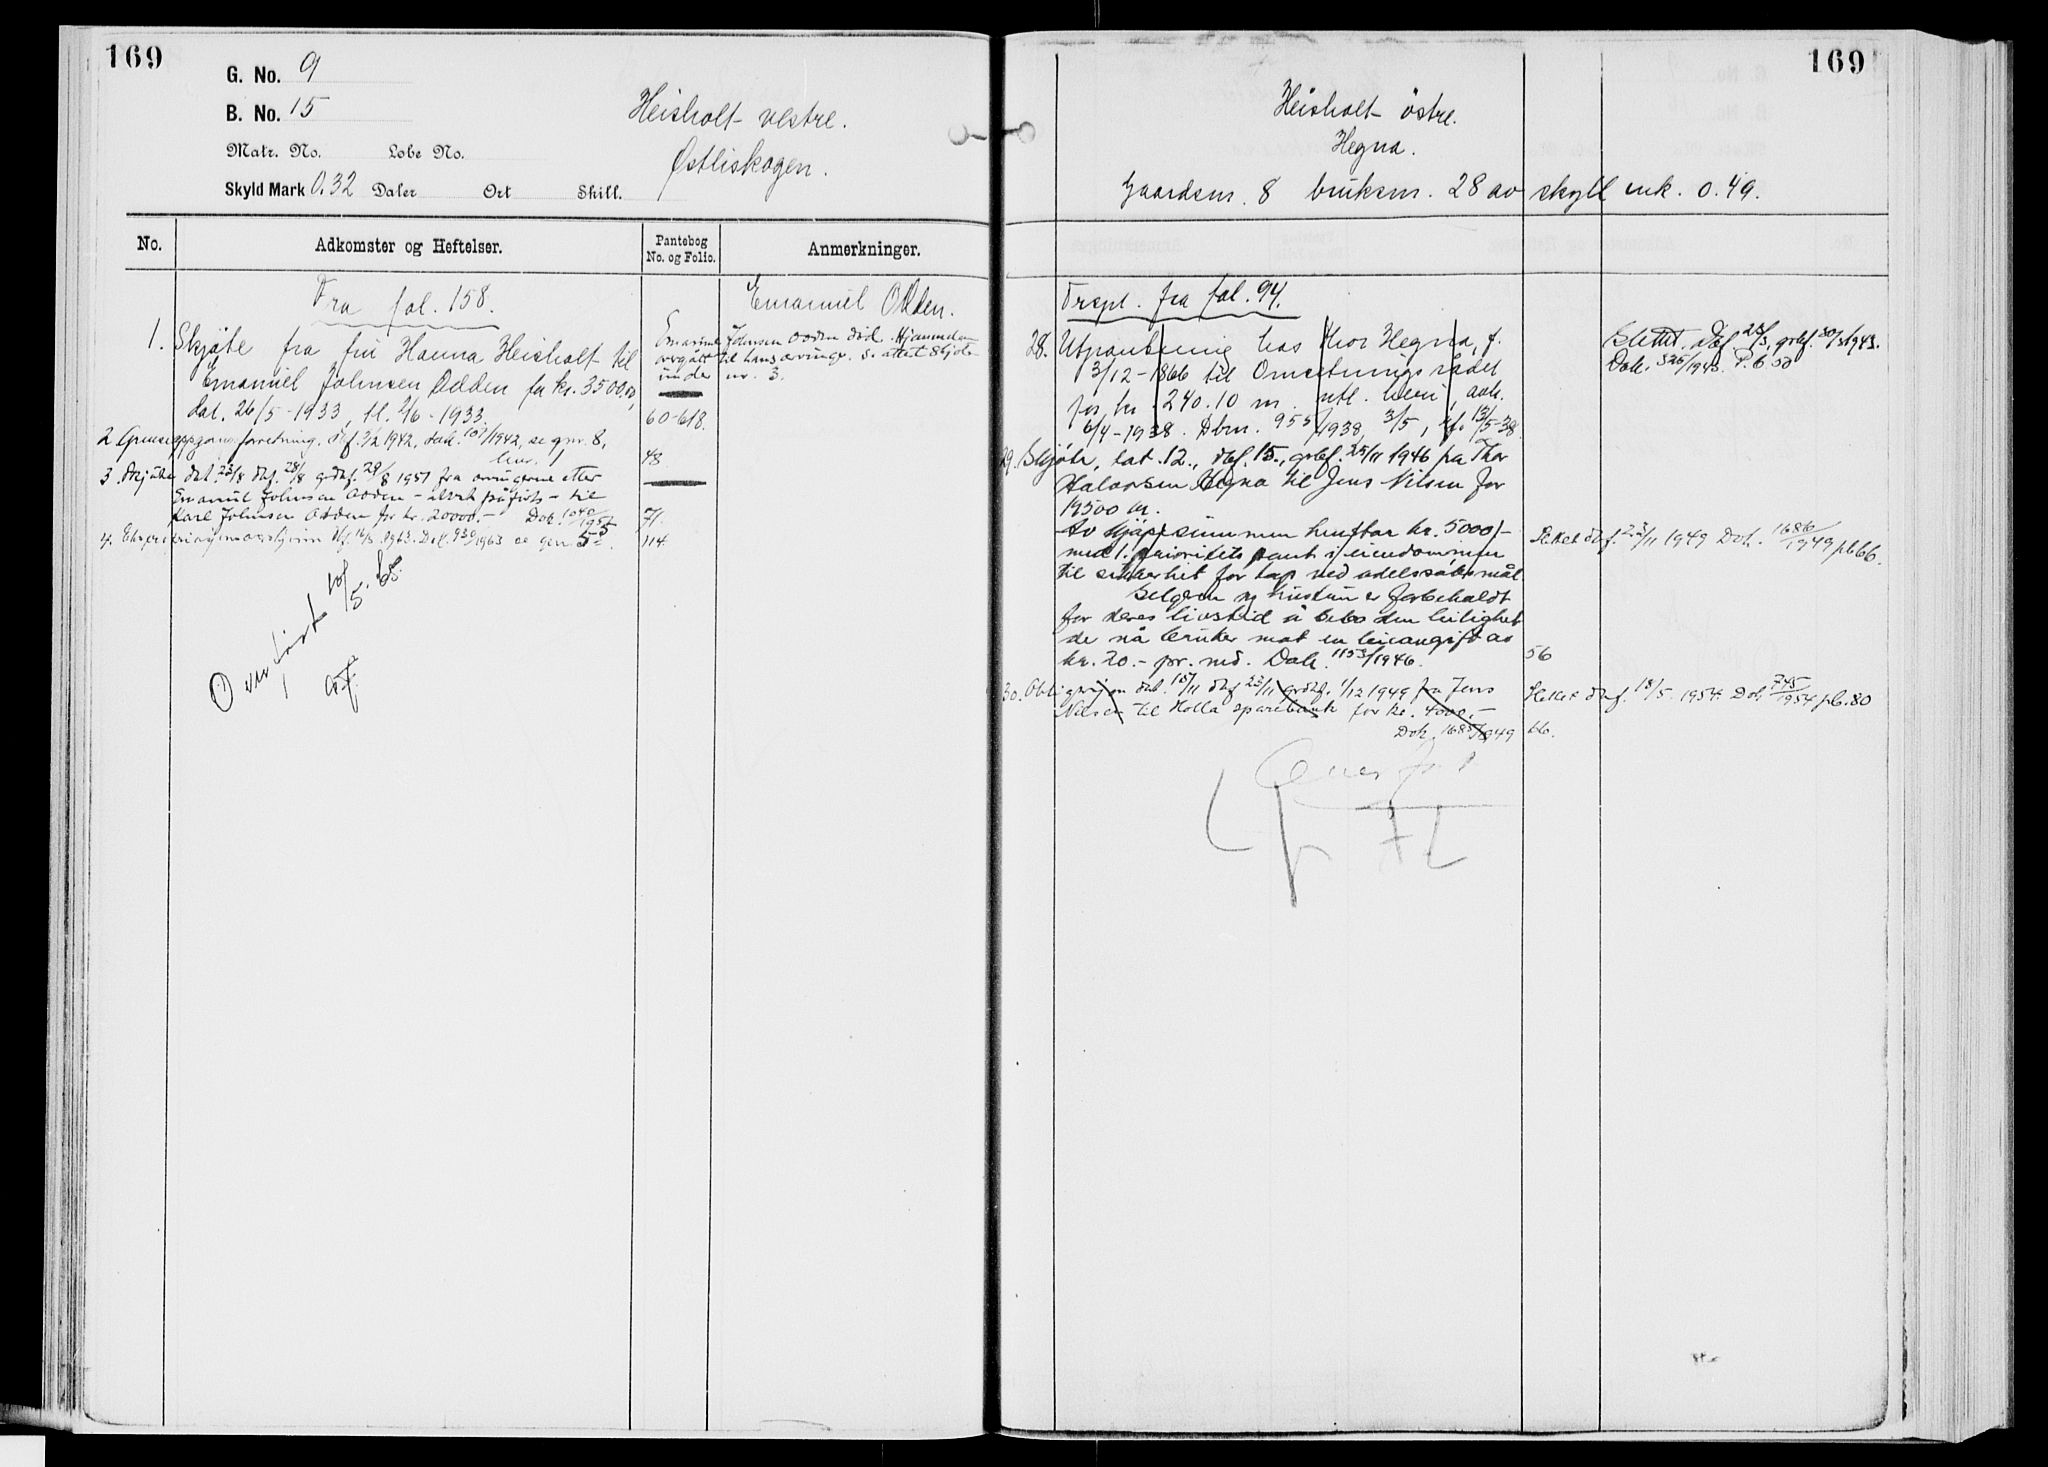 169
G. No. 9
B. No. 15
Matr. No. Løbe No.
Skyld Mark 0.32 Daler Ort Skill.
Heisholt vestre.
Østliskogen.
No. Adkomster og Heftelser. Pantebog No. og Folio. Anmerkninger.
Fra fol. 158.
Emanuel Odden.
1. Skjøte fra fru Hanna Heisholt til
Emanuel Johnsen Odden for kr. 3500,00,
dat. 26/5-1933, tl. 2/6-1933.
60-618.
Emanuel Johnsen Odden død. Hjemmelen
overgått til hans arvinger. S. attest Skjøte
under nr. 3.
2. Grenseoppgangsforretning. dgf. 3/2 1942, dok. 107/1942, se gnr. 8,
bnr. 1
48
3. Skjøte dat. 23/8 dgf. 28/8 grbf. 29/8 1951 fra arvingerne etter
Emanuel Johnsen Odden - til
Karl Johnsen Odden for kr. 20000.- Dok. 1040/1951
71.
4. 1963. Dok. 930/1963 se gnr. 5
114
Overført 10/5. 65.
169
Heisholt østre.
Hegna.
Gaardsnr. 8 bruksnr. 28 av skyll mk. 0.49.
Trspt. fra fol. 94.
28. Utpantning hos Thor Hegna, f.
3/12-1866 til Omsetningsrådet
for kr. 240.10 m. utl. heri, avh.
6/4-1938. Dbnr. 955/1938, 3/5, tf. 13/5-38.
Slettet. Dgf 28/3, grbf. 30/3 1943.
Dok. 325/1943. P.b 50
29. Skjøte, dat. 12., dgf. 15., grbf. 25/11 1946 fra Thor
Halvorsen Hegna til Jens Nilsen for
19500 kr.
Av kjøpesummen henstår kr. 5000,-
med 1. prioritets pant i eiendommen
til sikkerhet for tap ved odelssøksmål.
Slettet dgf. 23/11 1949 Dok. 1686/1949 pb 66.
Selgeren og hustru er forbeholdt
for deres livstid å bebo den leilighet
de nå bruker mot en leieavgift av
kr. 20.- pr. md. Dok. 1153/1946.
56
30. Obligasjon dat. 18/11 dgf 23/11 grbf. 1/12 1949 fra Jens
Nilsen til Holla sparebank for kr. 4000,-
Dok. 1685/1949
66.
Slettet dgf. 18/5. 1954 Dok 745/1954 pb. 80
Overført